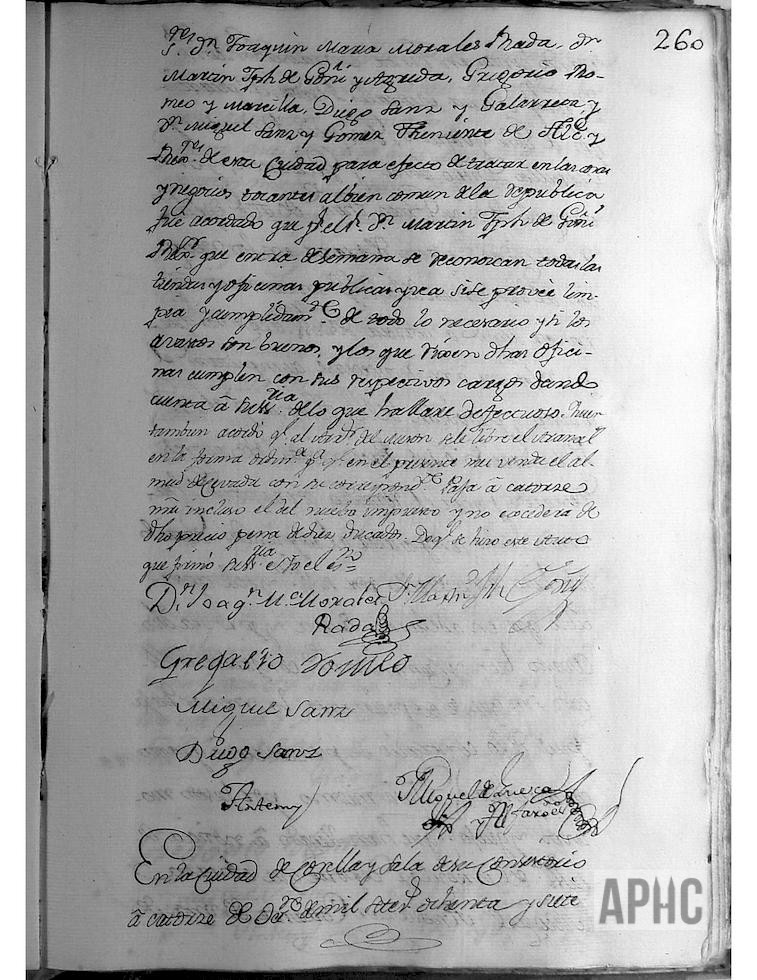 260
res Dn. Joaquin Maria Morales Rada, Dn.
Martin Jph de Goñi y Azpeda, Gregorio Ro-
meo y Marcilla, Diego Sanz y Galarreta, y
Dn. Miguel Sanz y Gomez Theniente de Alce. y
Rexres. de esta Ciudad para efecto de tratar en las cosas
y negocios tocantes al bien comun de la republica
fue acordado que pr. el Sr. Dn. Martin Jph de Goñi
Rexr. que entra de semana se reconozcan todas las
tiendas y oficinas publicas y vea si se provee lim-
pia y cumplidamte. de todo lo necesario y si los
son buenos, y los que viven dhas ofici-
nas cumplen con sus respectivos cargos dando
cuenta â su Sria. de lo que hallare defectuoso.
tambien acordó qe. al
en la forma ordine. pa. qe. en el presente mes venda el al-
mud de cevada con su correspondte. Paja â catorze
mrs incluso el del nuebo impuesto y no excederá de
dho precio pena de diez ducados. De qe. se hizo este
que firmó su Sria. e Yo el Sno.
Dn. Joaqn. Ma. Morales Dn. Martn. Jph Goñi
Rada
Gregorio Romeo
Miguel Sanz
Diego Sanz
Antemy
Miguel de
y
En la Ciudad de Corella y Sala de su Consistorio
â catorze de de mil setez. ochenta y siete
APHC